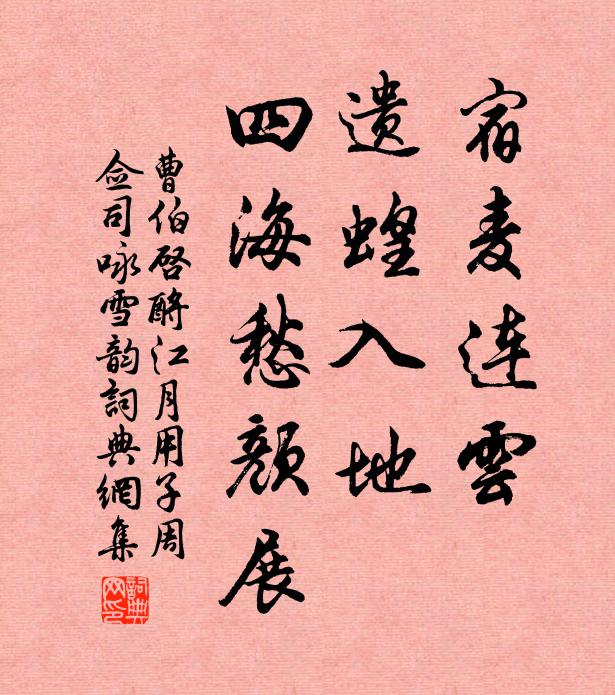 宿麦连雲
遗蝗入地
四海愁颜展
曹伯啓酹江月用子周
佥司咏雪韵詞典網集
詞典
网印